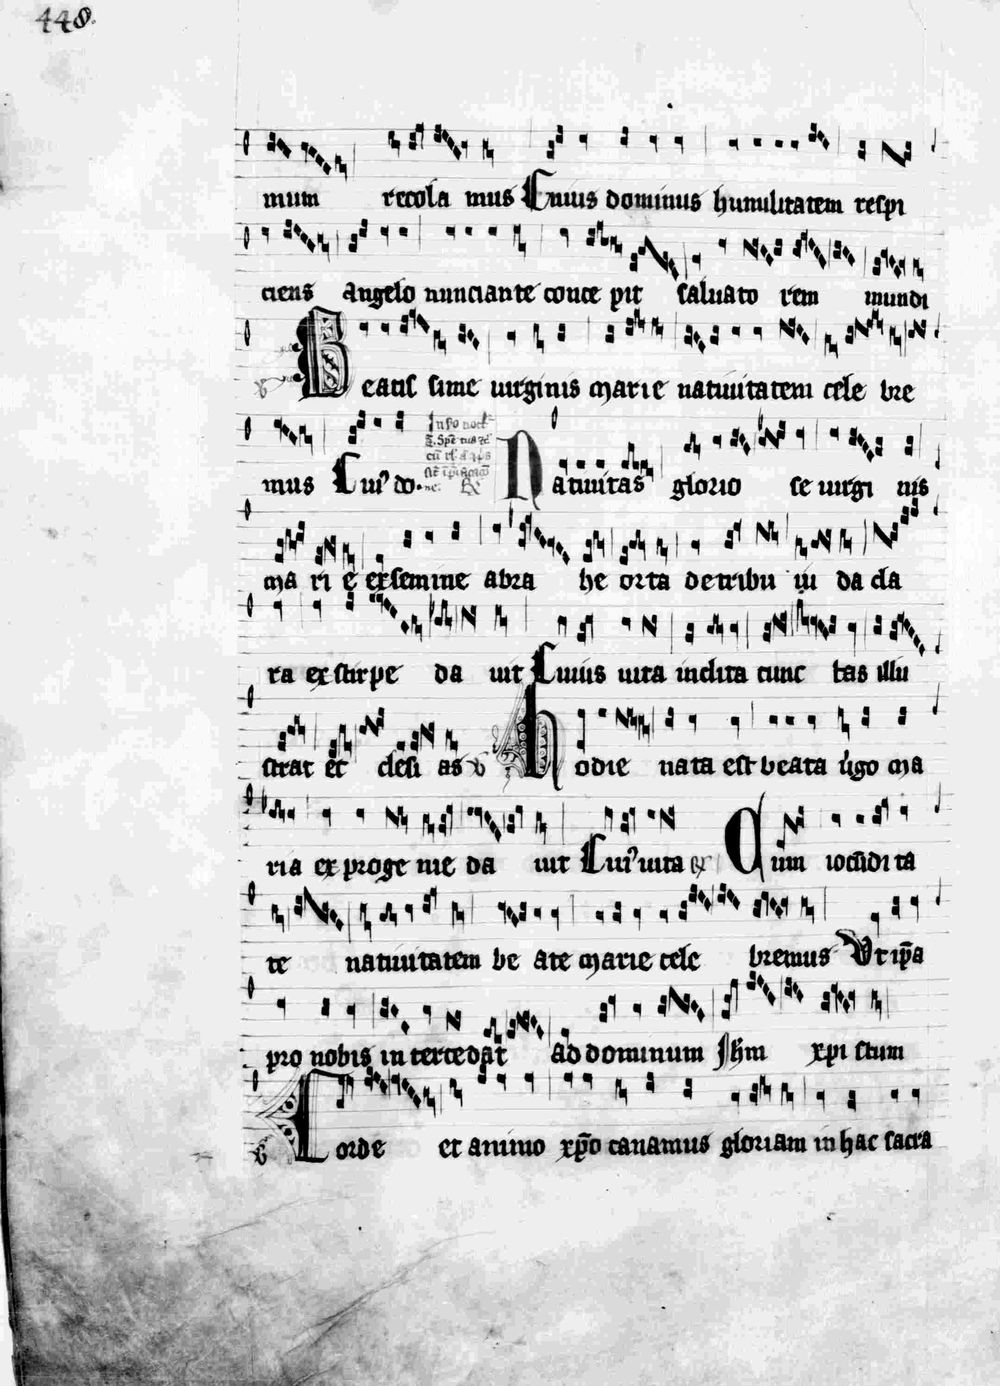 448.
mum recola mus Cuius dominus humilitatem respi
ciens angelo nunciante conce pit saluato rem mundi
Beatis sime uirginis marie natiuitatem cele bre
mus Cui9 do
Natiuitas glorio se uirgi nis
ma ri e ex semine abra he orta de tribu iu da cla
ra ex stirpe da uit Cuius uita inclita cunc tas illu
strat ec clesi as
hodie nata est beata u̓go ma
ria ex proge nie da uit Cui9 uita
Cum iocūdi ta
te natiuitatem be ate marie cele bremus Vt ip̄a
pro nobis in tercedat ad dominum Jhm xpi stum
Corde et animo xp̄o canamus gloriam in hac sacra